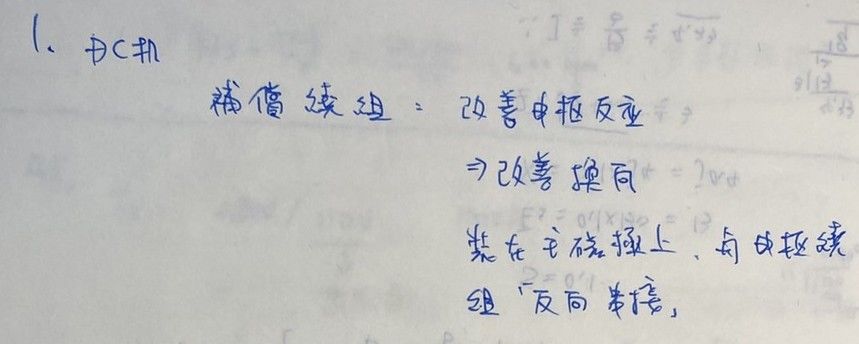 1. DC机
補償繞組: 改善电枢反应
⇒改善換向
裝在主磁極上、与电枢繞
組「反向串接」